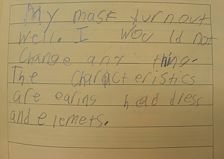 My mask turnout
well. I would not
change any thing.
The characteristics
are earins head dress
and elemets.